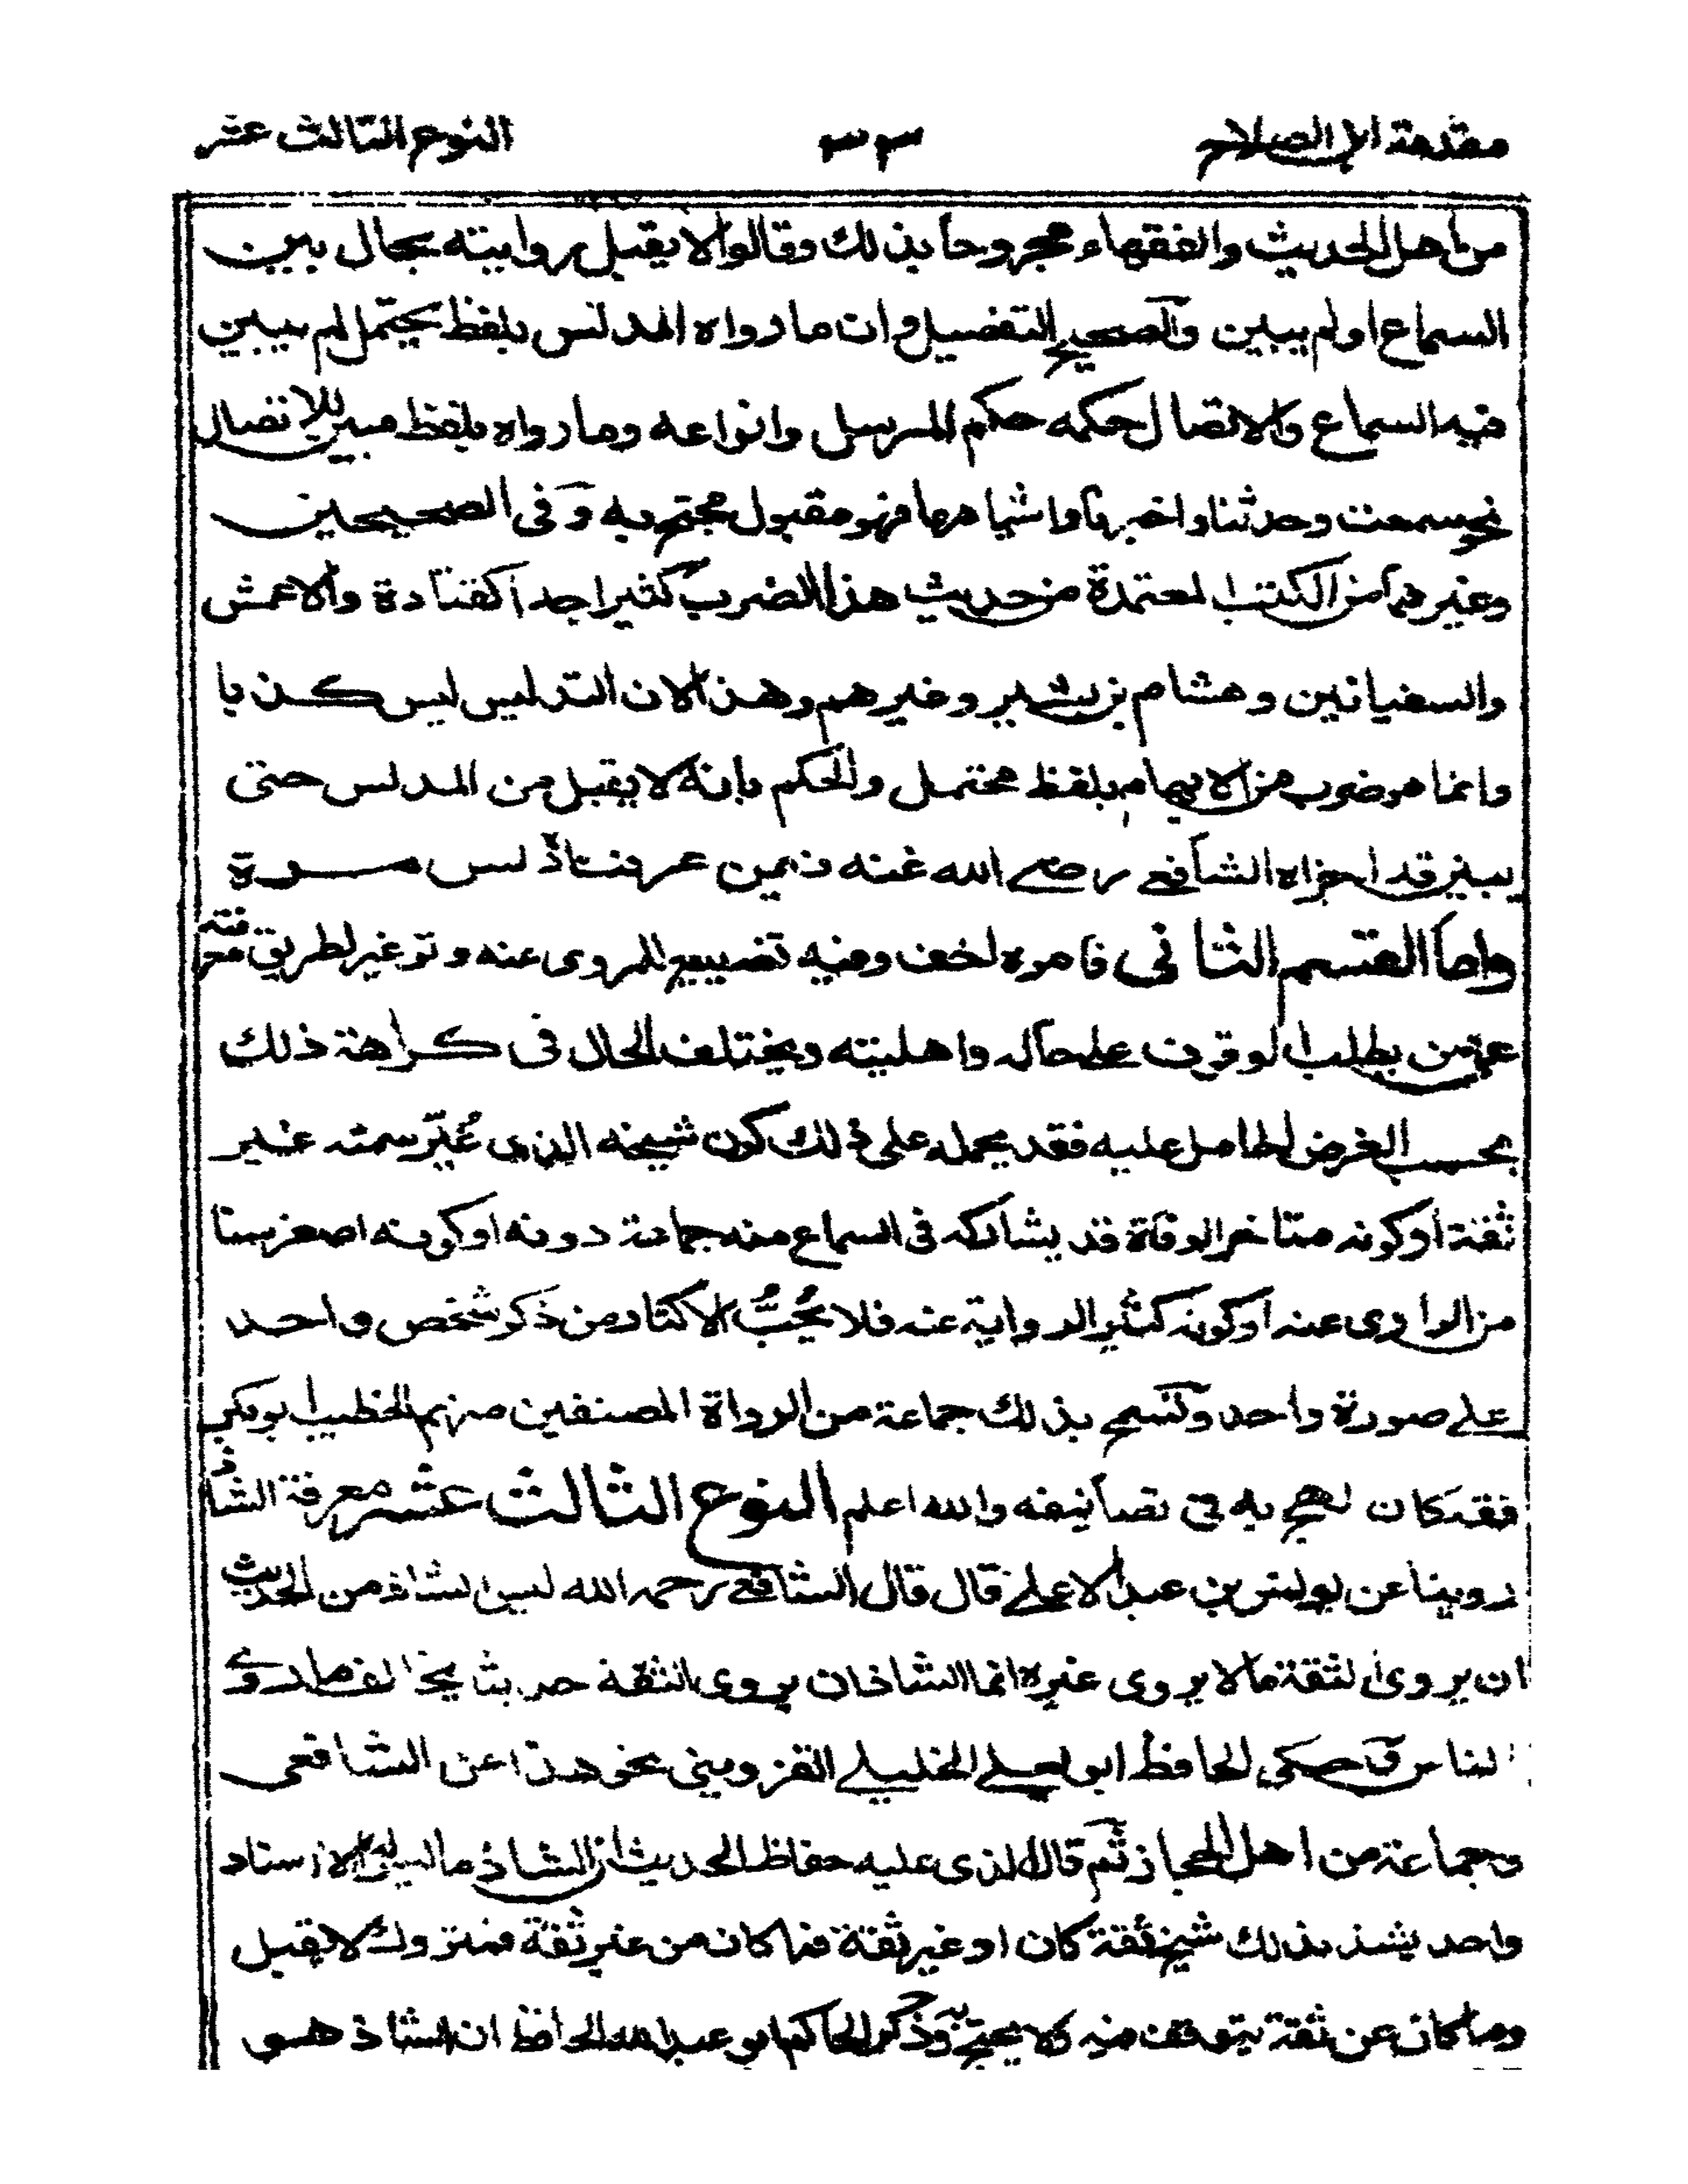 مقدمة ابن الصلاح ٣٣ النوع الثالث عشر
من اهل الحديث والفقهاء مجروحا بذلك وقالوا لا يقبل روايته بحال بين
السماع او لم يبين والصحيح التفصيل وان ما رواه المدلس بلفظ يحتمل لم يبين
فيه السماع والاتصال حكمه حكم المرسل وانواعه وما رواه بلفظ مبين للاتصال
نحو سمعت وحدثنا واخبرنا واشباهها فهو مقبول محتج به وفى الصحيحين
وغيرهما من الكتب المعتمدة من حديث هذا الضرب كثير اجدا كقتادة والاعمش
والسفيانين وهشام بن بشير وغيرهم وهذا لان التدليس ليس كذبا
وانما هو ضرب من الايهام بلفظ محتمل والحكم بانه لا يقبل من المدلس حتى
يبين قد اجراه الشافعى رضى الله عنه فيمن عرفناه دلس مرة
واما القسم الثانى فامره اخف وفيه تضييع للمروى عنه وتوعير لطريق معرفته
على من يطلب الوقوف على حاله واهليته ويختلف الحال فى كراهة ذلك
بحسب الغرض الحامل عليه فقد يحمله على ذلك كون شيخه الذى غيّر سمته غير
ثقة او كونه متاخر الوفاة قد يشاركه فى السماع منه جماعة دونه او كونه اصغر سنا
من الراوى عنه او كونه كثير الرواية عنه فلا يُحِبُّ الاكثار من ذكر شخص واحد
على صورة واحد وتسمح بذلك جماعة من الرواة المصنفين منهم الخطيب ابو بكر
فقد كان لهج به فى تصانيفه والله اعلم النوع الثالث عشر معرفة الشاذ
روينا عن يونس بن عبد الاعلى قال قال الشافعى رحمه الله ليس الشاذ من الحديث
ان يروى الثقة ما لا يروى غيره انما الشاذ ان يروى الثقة حديثا يخالف ما روى
الناس وحكى الحافظ ابو يعلى الخليلى القزوينى نحو هذا عن الشافعى
وجماعة من اهل الحجاز ثم قال الذى عليه حفاظ الحديث ان الشاذ ما ليس له الا اسناد
واحد يشذ بذلك شيخ ثقة كان او غير ثقة فما كان من غير ثقة فمتروك لا يقبل
وما كان عن ثقة يتوقف فيه ولا يحتج به وذكر الحاكم ابو عبد الله الحافظ ان الشاذ هو